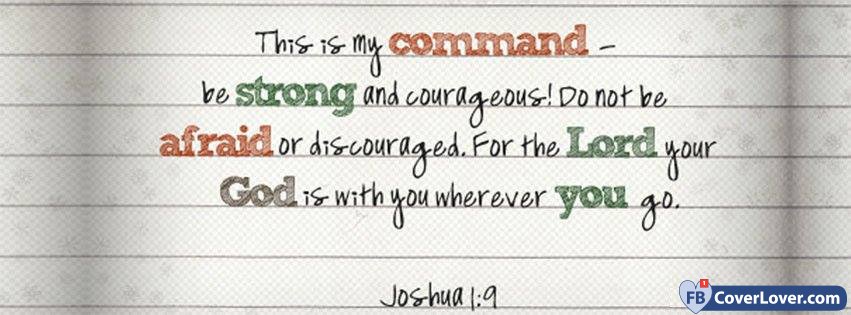 This is my command –
be strong and courageous! Do not be
afraid or discouraged. For the Lord your
God is with you wherever you go.
Joshua 1:9
FB 1 CoverLover.com